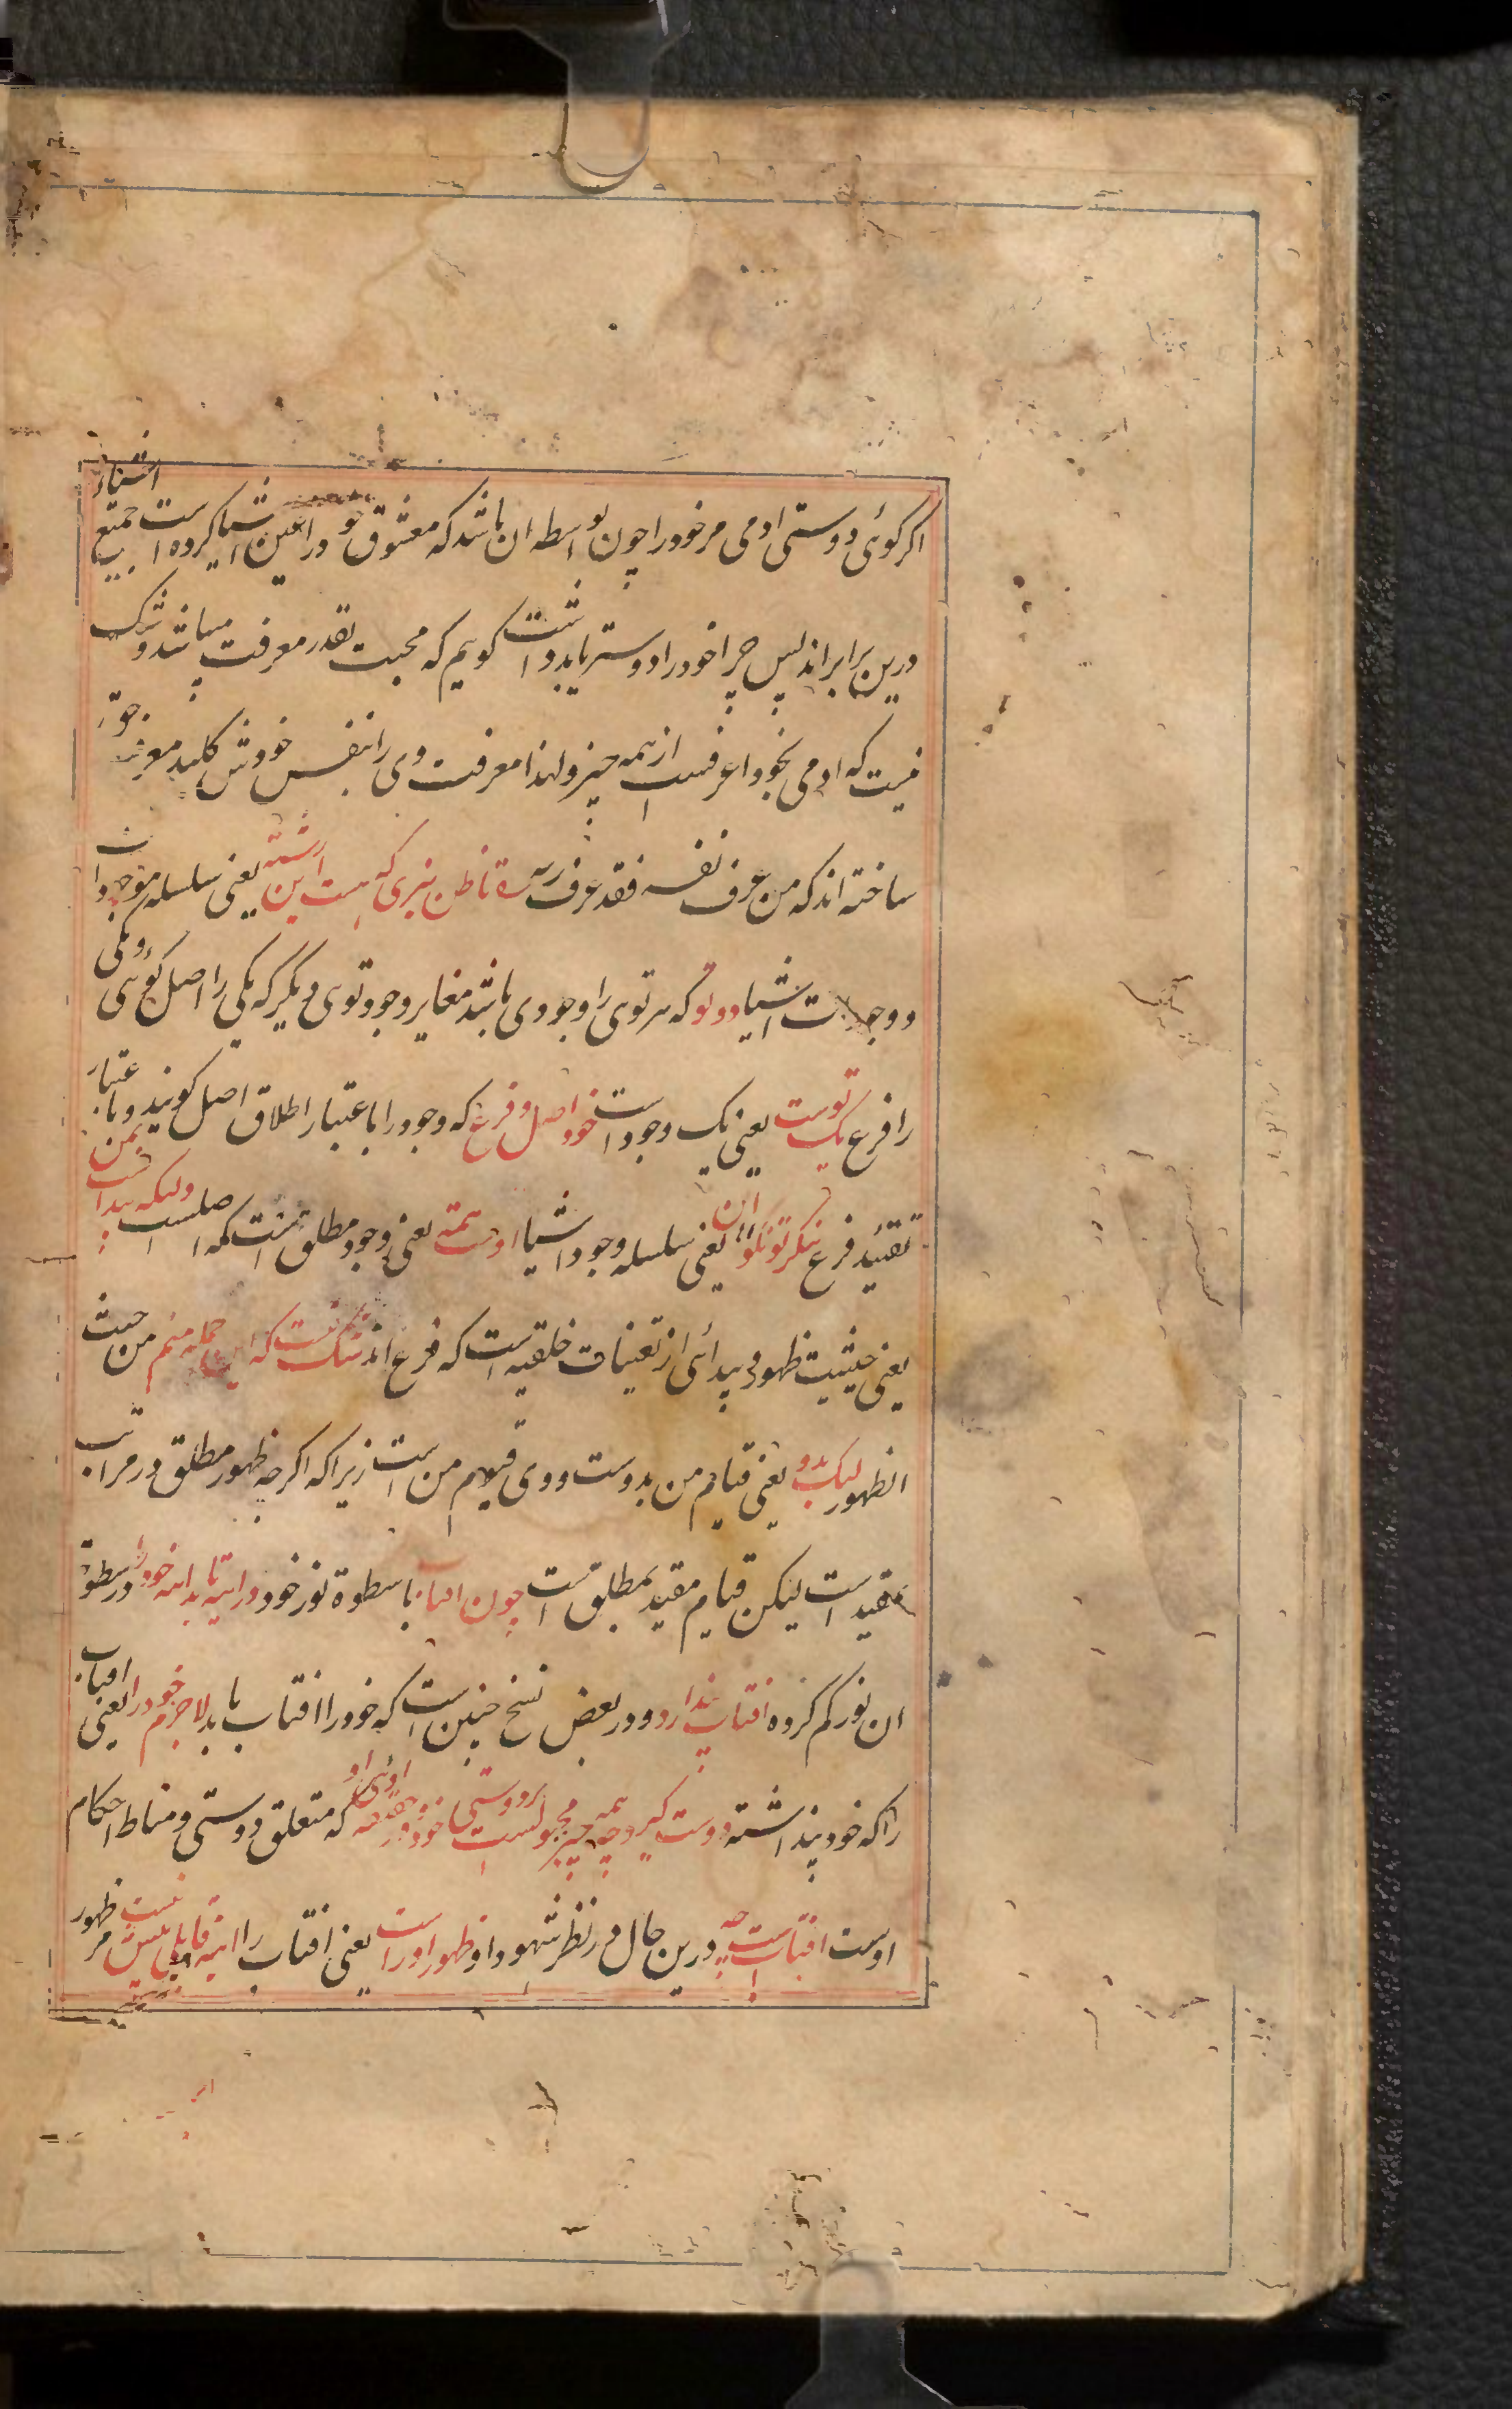 اکر کوئی دوستی ادمی مر خود را چون بواسطه ان باشد که معشوق خود را عین اشیا کرده است جمیع اشیا
درین برابر اند پس چرا خود را دوستر باید داشت کویم که محبت بقدر معرفت میباشد و شک
نیست که ادمی بخود اعرفست از همه چیز و لهذا معرفت وی را نفس خودش کلید معرفت
ساخته اند که من عرف نفسه فقد عرف ربه تا ظن نبری که هست این رشته یعنی سلسله موجودات
و وجودات اشیا دو تو که هر توی را وجودی باشد مغایر وجود توی دیکر که یکی را اصل کوئی و یکی
را فرع یک توست یعنی یک وجود است خود اصل و فرع که وجود را باعتبار اطلاق اصل کویند و باعتبار
تقئید فرع بنکر تو نکو ان یعنی سلسله وجود اشیا اوست همه یعنی وجود مطلق است که اصلست ولیکه پیداست بمن
یعنی حیثیت ظهور و پیدائی از تعینات خلقیه است که فرع اند شک نیست که این جمله منم من حیث
الظهور لیک بدو یعنی قیام من بدوست و وی قیوم من است زیرا که اکرچه ظهور مطلق در مراتب
مقید است لیکن قیام مقید بمطلق است چون افتاب با سطوة نور خود در اینه تابد اینه خود را در سطوة
ان نور کم کرده افتاب پندارد و در بعض نسخ چنین است که خود را افتاب یابد لاجرم خود را یعنی افتاب
را که خود پنداشته دوست کیرد چه همه چیز مجبولست بر دوستی خود و در حقیقت اوئی او که متعلق دوستی و مناط احکام
اوست افتابست چه درین حال در نظر شهود او ظهور او راست یعنی افتاب را اینه قابلی بیش نیست مر ظهور